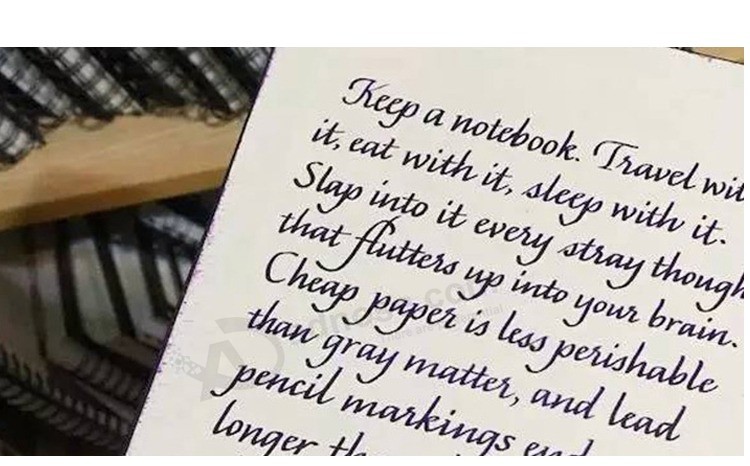 Keep a notebook. Travel wit
it, eat with it, sleep with it.
Slap into it every stray though
that flutters up into your brain.
Cheap paper is less perishable
than gray matter, and lead
pencil markings end
longer th